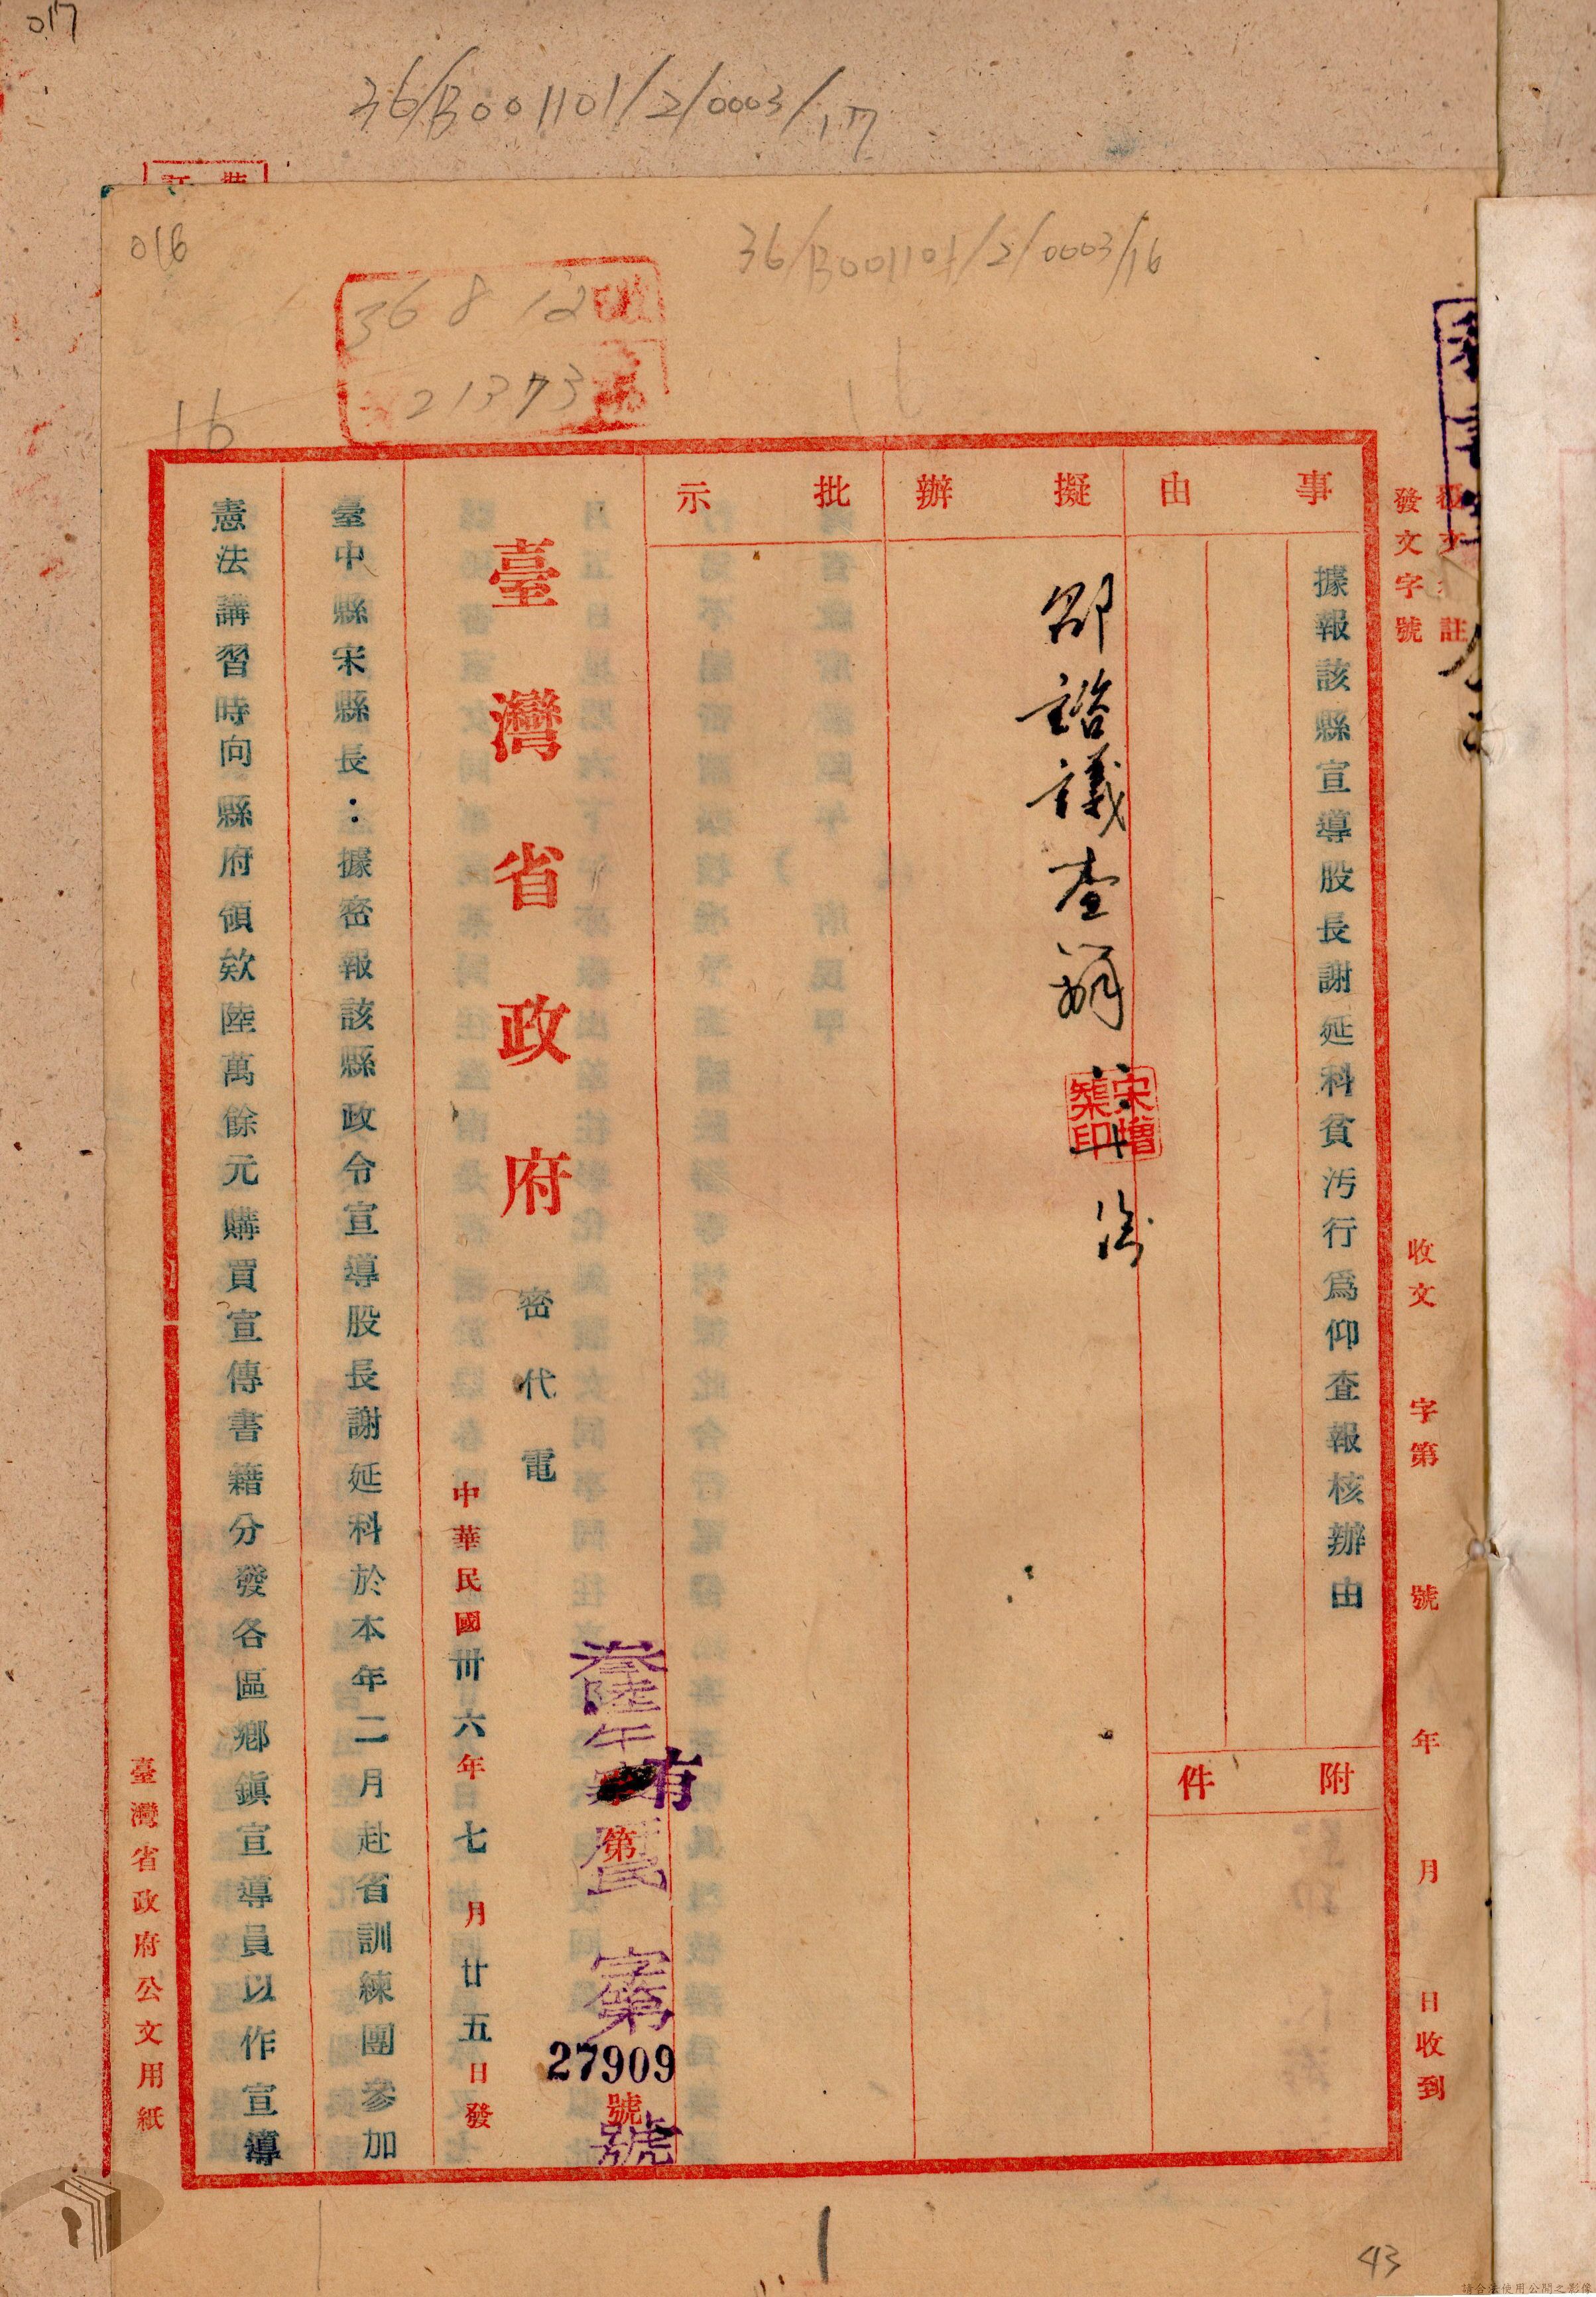 017
36/B001101/2/0003/17
016
36/B001101/2/0003/16
36 8 12
21373
16
發文字號
註
收文 字第 號 年 月 日收到
事由
據報該縣宣導股長謝延科貧污行為仰查報核辦由
附件
擬辦
邵諮議查辦
宋增榘印
批示
臺灣省政府
密代電
叁陸午有
府民
字第
第
27909
號
號
中華民國卅六年七月廿五日發
臺中縣宋縣長：據密報該縣政令宣導股長謝延科於本年二月赴省訓練團參加
憲法講習時向縣府領欵陸萬餘元購買宣傳書籍分發各區鄉鎮宣導員以作宣導
臺灣省政府公文用紙
43
請合法使用公開之影像